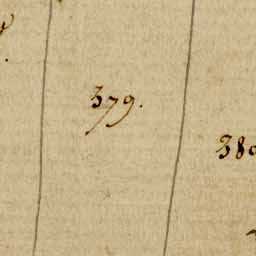 379.
380